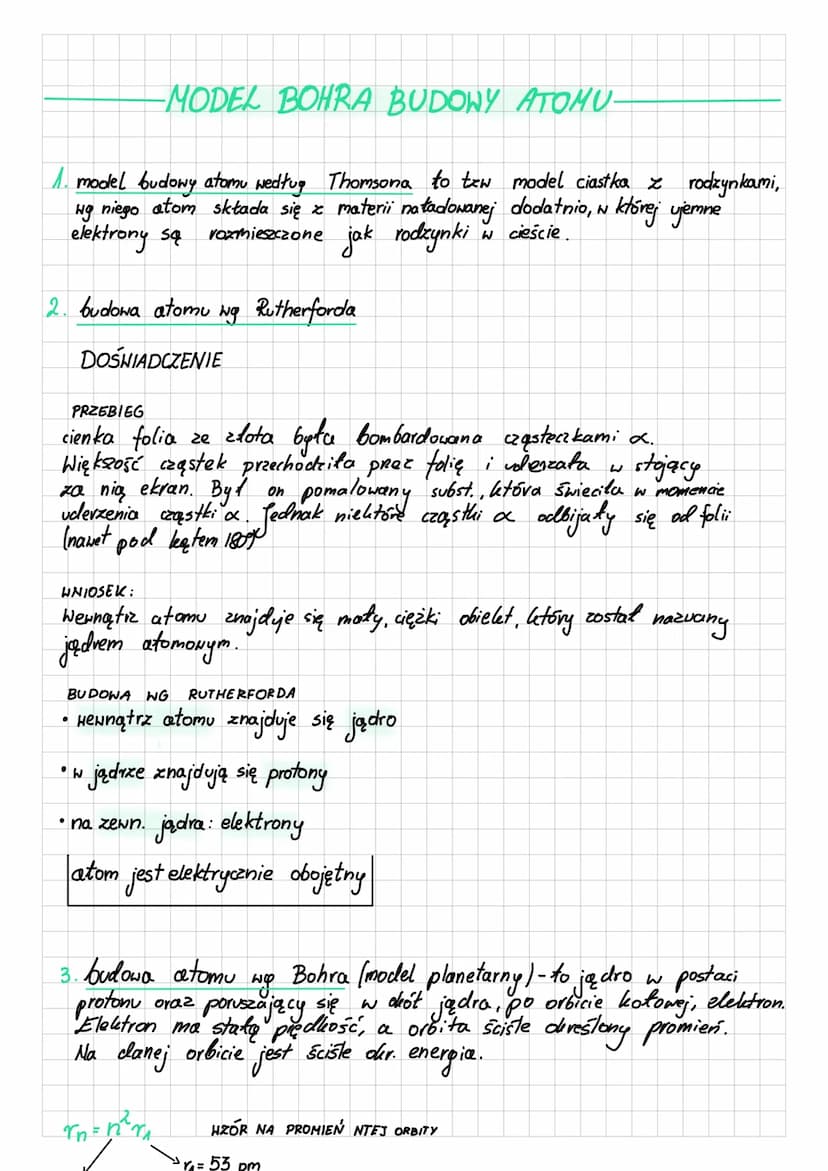 MODEL BOHRA BUDOWY ATOMU
1. model budowy atomu według Thomsona to tzw model ciastka z rodzynkami,
wg niego atom składa się z materii naładowanej dodatnio, w której ujemne
elektrony są rozmieszczone jak rodzynki w cieście.
2. budowa atomu wg Rutherforda
DOŚWIADCZENIE
PRZEBIEG
cienka folia ze złota była bombardowana cząsteczkami α.
Większość cząstek przechodziła przez folię i uderzała w stojący
za nią ekran. Był on pomalowany subst., która świeciła w momencie
uderzenia cząstki α. Jednak niektóre cząstki α odbijały się od folii
(nawet pod kątem 180°)
WNIOSEK:
Wewnątrz atomu znajduje się mały, ciężki obiekt, który został nazwany
jądrem atomowym.
BUDOWA WG RUTHERFORDA
• wewnątrz atomu znajduje się jądro
• w jądrze znajdują się protony
• na zewn. jądra: elektrony
atom jest elektrycznie obojętny
3. budowa atomu wg Bohra (model planetarny) - to jądro w postaci
protonu oraz poruszający się w okół jądra, po orbicie kołowej, elektron.
Elektron ma stałą prędkość, a orbita ściśle określony promień.
Na danej orbicie jest ściśle okr. energia.
rn = n²r1 WZÓR NA PROMIEŃ NTEJ ORBITY
r1 = 53 pm